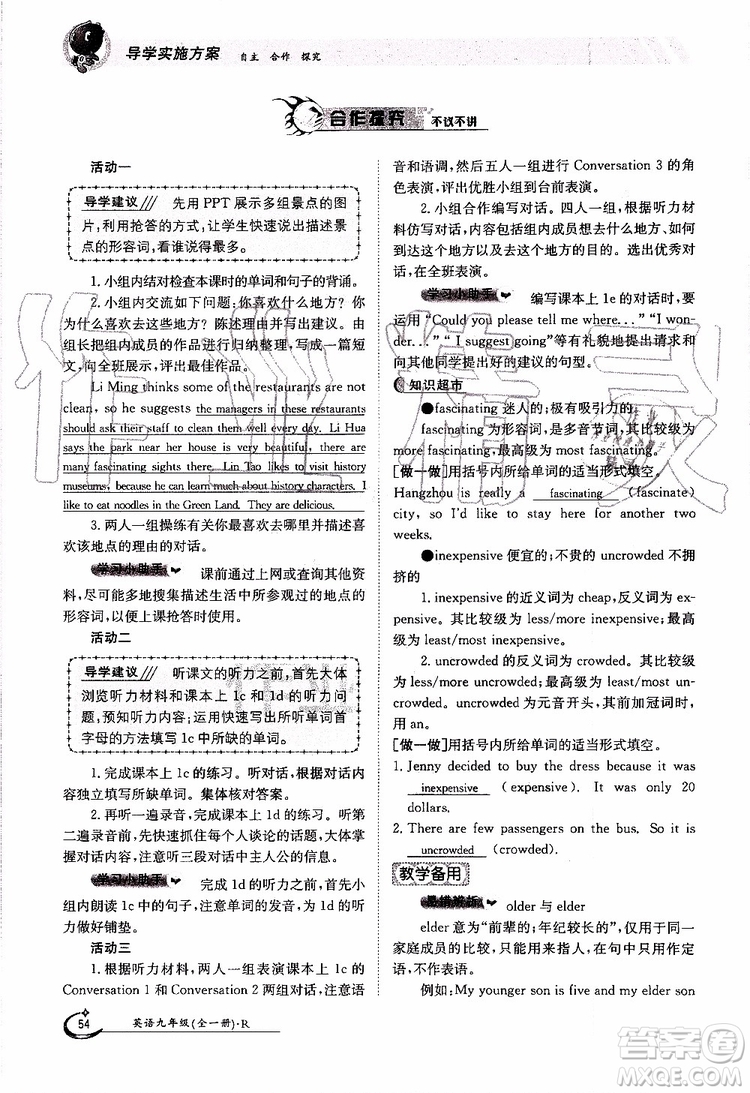 导学实施方案 自主 合作 探究
合作探究 不议不讲
活动一
导学建议 先用 PPT 展示多组景点的图
片,利用抢答的方式,让学生快速说出描述景
点的形容词,看谁说得最多。
1. 小组内结对检查本课时的单词和句子的背诵。
2. 小组内交流如下问题:你喜欢什么地方? 你
为什么喜欢去这些地方? 陈述理由和建议。由
组长把组内成员的作品进行归纳整理,写成一篇短
文,向全班展示,评出最佳作品。
Li Ming thinks some of the restaurants are not
clean, so he suggests the managers in these restaurants
should ask their staff to clean them well every day. Li Hua
says the park near her house is very big. There are
many fascinating sights there. Lin Tao likes to visit history
museums, because he can learn much about history characters. I
like to eat noodles in the Green Land. They are delicious.
3. 两人一组操练有关你最喜欢去哪里并描述喜
欢该地点的理由的对话。
学习小助手 课前通过上网或查询其他资
料,尽可能多地搜集描述生活中所参观过的地点的
形容词,以便课上抢答时用。
活动二
导学建议 听课文的听力之前,首先大体
浏览听力材料和课本上 1c 和 1d 的听力问
题,预知听力内容;运用快速写出所听单词首
字母的方法填写 1c 中所缺的单词。
1. 完成课本上 1c 的练习。听对话,根据对话内
容独立填写所缺单词。集体核对答案。
2. 再听一遍录音,完成课本上 1d 的练习。听第
二遍录音前,先快速读出每个人谈论的话题,大体掌
握对话内容,注意听三段对话中主人公的信息。
学习小助手 完成 1d 的听力之前,首先小
组内朗读 1c 中的句子,注意单词的发音,为完成听
力做好铺垫。
活动三
1. 根据听力材料,两人一组表演课本上 1c 的
Conversation 1 和 Conversation 2 两组对话,注意语
音和语调,然后五人一组进行 Conversation 3 的角
色表演,评出优胜小组到台前表演。
2. 小组合作编写对话。四人一组,根据听力材
料仿写对话,内容包括组内成员想去什么地方、如何
到达这个地方和去这个地方的目的。选出优秀对
话,在全班表演。
学习小助手 编写课本上 1e 的对话时,要
运用“Could you please tell me where...”“I won-
der...”“I suggest going”等有礼貌地提出请求和
向其他同学提出好的建议的句型。
知识超市
●fascinating 迷人的;极有吸引力的
fascinating 为形容词,是多音节词,其比较级为
more fascinating,最高级为 most fascinating。
[做一做]用括号内所给单词的适当形式填空。
Hangzhou is really a fascinating (fascinate)
city, so I'd like to stay here for another two
weeks.
●inexpensive 便宜的;不贵的 uncrowded 不拥
挤的
1. inexpensive 的近义词为 cheap,反义词为 ex-
pensive。其比较级为 less/more inexpensive;最高
级为 least/most inexpensive。
2. uncrowded 的反义词为 crowded。其比较级为
less/more uncrowded;最高级为 least/most un-
crowded。uncrowded 为元音开头,其前加冠词时,
用 an。
[做一做]用括号内所给单词的适当形式填空。
1. Jenny decided to buy the dress because it was
inexpensive (expensive). It was only 20
dollars.
2. There are few passengers on the bus. So it is
uncrowded (crowded).
教学备用
易错辨析 older 与 elder
elder 意为“前辈的;年纪较长的”,仅用于同一
家庭成员的比较,只能用来指人,在句中只用作定
语,不作表语。
例如:My younger son is five and my elder son
54 英语九年级(全一册)·R
作业精灵
作业
答案圈